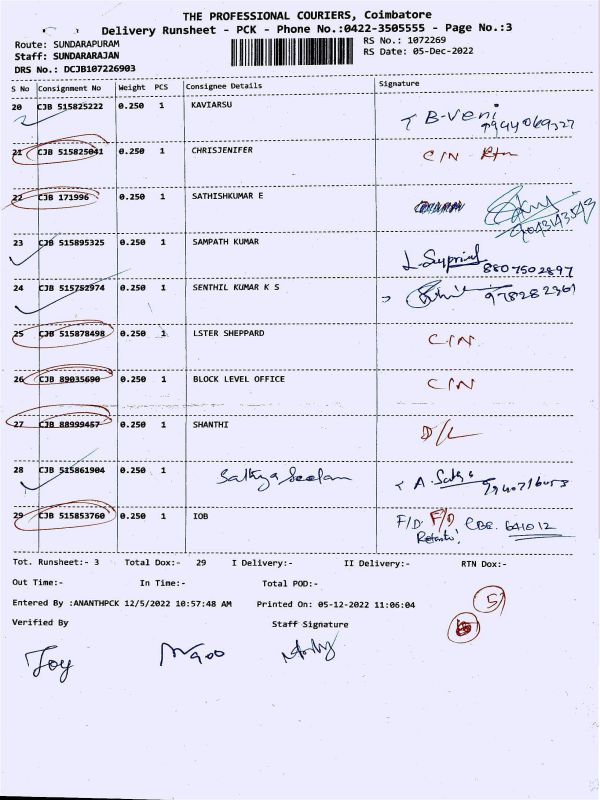 THE PROFESSIONAL COURIERS, Coimbatore
Delivery Runsheet - PCK - Phone No.:0422-3505555 - Page No.:3
Route: SUNDARAPURAM
RS No.: 1072269
Staff: SUNDARARAJAN
RS Date: 05-Dec-2022
DRS No.: DCJB107226903
S No Consignment No Weight PCS Consignee Details Signature
20 CJB 515825222 0.250 1 KAVIARSU B-Veni
21 CJB 515825041 0.250 1 CHRISJENIFER C/N Rtn
22 CJB 171996 0.250 1 SATHISHKUMAR E
23 CJB 515895325 0.250 1 SAMPATH KUMAR
8807502897
24 CJB 515752974 0.250 1 SENTHIL KUMAR K S
25 CJB 515878498 0.250 1 LSTER SHEPPARD C/N
26 CJB 89035690 0.250 1 BLOCK LEVEL OFFICE C/N
27 CJB 88999457 0.250 1 SHANTHI D/L
28 CJB 515861904 0.250 1 Sathya Seelan
29 CJB 515853760 0.250 1 IOB F/D F/D CBE. 641012
Tot. Runsheet:- 3 Total Dox:- 29 I Delivery:- II Delivery:- RTN Dox:-
Out Time:- In Time:- Total POD:-
Entered By :ANANTHPCK 12/5/2022 10:57:48 AM Printed On: 05-12-2022 11:06:04
5
Verified By Staff Signature
Joy